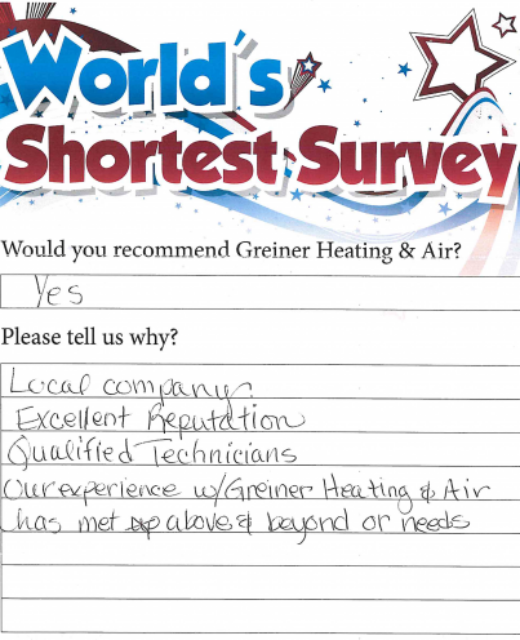 World's
Shortest Survey
Would you recommend Greiner Heating & Air?
Yes
Please tell us why?
Local company.
Excellent Reputation
Qualified Technicians
Our experience w/Greiner Heating & Air
has met above & beyond or needs